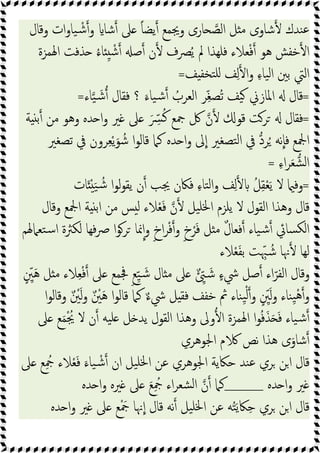 عندك لأشاوى مثل الصَّحارى ويجمع أيضاً على أشايا وأَشْياوات وقال
الأخفش هو أَفْعلاء فلهذا لم يُصرف لأن أصله أَشْيِئاءُ حذفت الهمزة
التي بين الياءِ والأَلِف للتخفيف=
=قال له المازني كيف تُصغِّر العربُ أَشياءَ ؟ فقال أُشَيَّاء=
=فقال له تركت قولك لأنَّ كل جمع كُسِّرَ على غير واحده وهو من أبنية
الجمع فإنه يُردُّ في التصغير إلى واحده كما قالوا شُوَيْعِرون في تصغير
الشُّعَراءِ =
=وفيما لا يَعْقِلُ بالأَلِف والتاءِ فكان يجب أن يقولوا شُيَيْئات
قال وهذا القول لا يلزم الخليل لأَنَّ فَعْلاء ليس من ابنية الجمع وقال
الكسائي أشياء أفعالٌ مثل فَرْخٍ وأَفْراخٍ وإنما تركوا صرفها لكثرة استعمالهم
لها لأنها شُبِّهت بفَعْلاء
وقال الفرّاء أصل شيءٍ شَيِّئٌ على مثال شَيِّعٍ فجمع على أَفْعِلاء مثل هَيِّنٍ
وأَهْيِناء ولَيِّنٍ وأَلْيِناء ثم خفف فقيل شيءٌ كما قالوا هَيْنٌ ولَيْنٌ وقالوا
أشياء فَحَذَفُوا الهمزة الأُولى وهذا القول يدخل عليه أن لا يُجْمَع على
أَشاوَى هذا نص كلام الجوهري
قال ابن بري عند حكاية الجوهري عن الخليل ان أَشْياءَ فَعْلاء جُمِع على
غير واحده ______كما أَنَّ الشعراء جُمِعَ على غيره واحده
قال ابن بري حِكايَتُه عن الخليل أنه قال إنها جَمْع على غير واحده